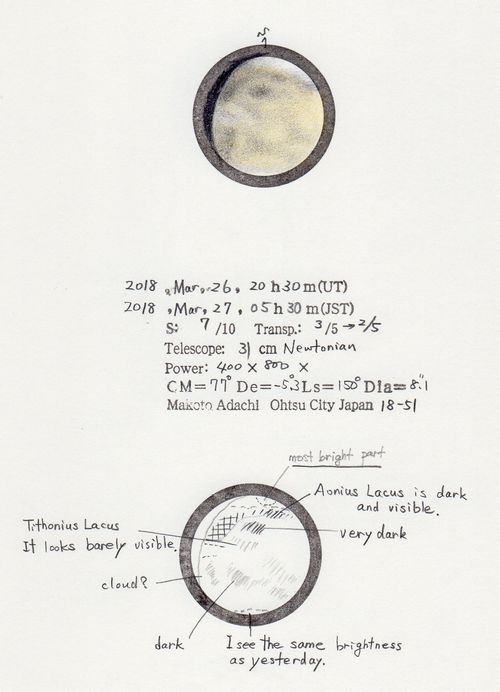 N
2018 , Mar, 26 , 20 h 30 m (UT)
2018 , Mar, 27 , 05 h 30 m (JST)
S: 7 /10 Transp.: 3/5 → 2/5
Telescope: 31 cm Newtonian
Power: 400 × 800 ×
CM= 77° De= -5.3 Ls= 150° Dia= 8."1
Makoto Adachi Ohtsu City Japan 18-51
most bright part
Aonius Lacus is dark
and visible.
Tithonius Lacus
It looks barely visible.
very dark
cloud?
dark
I see the same brightness
as yesterday.